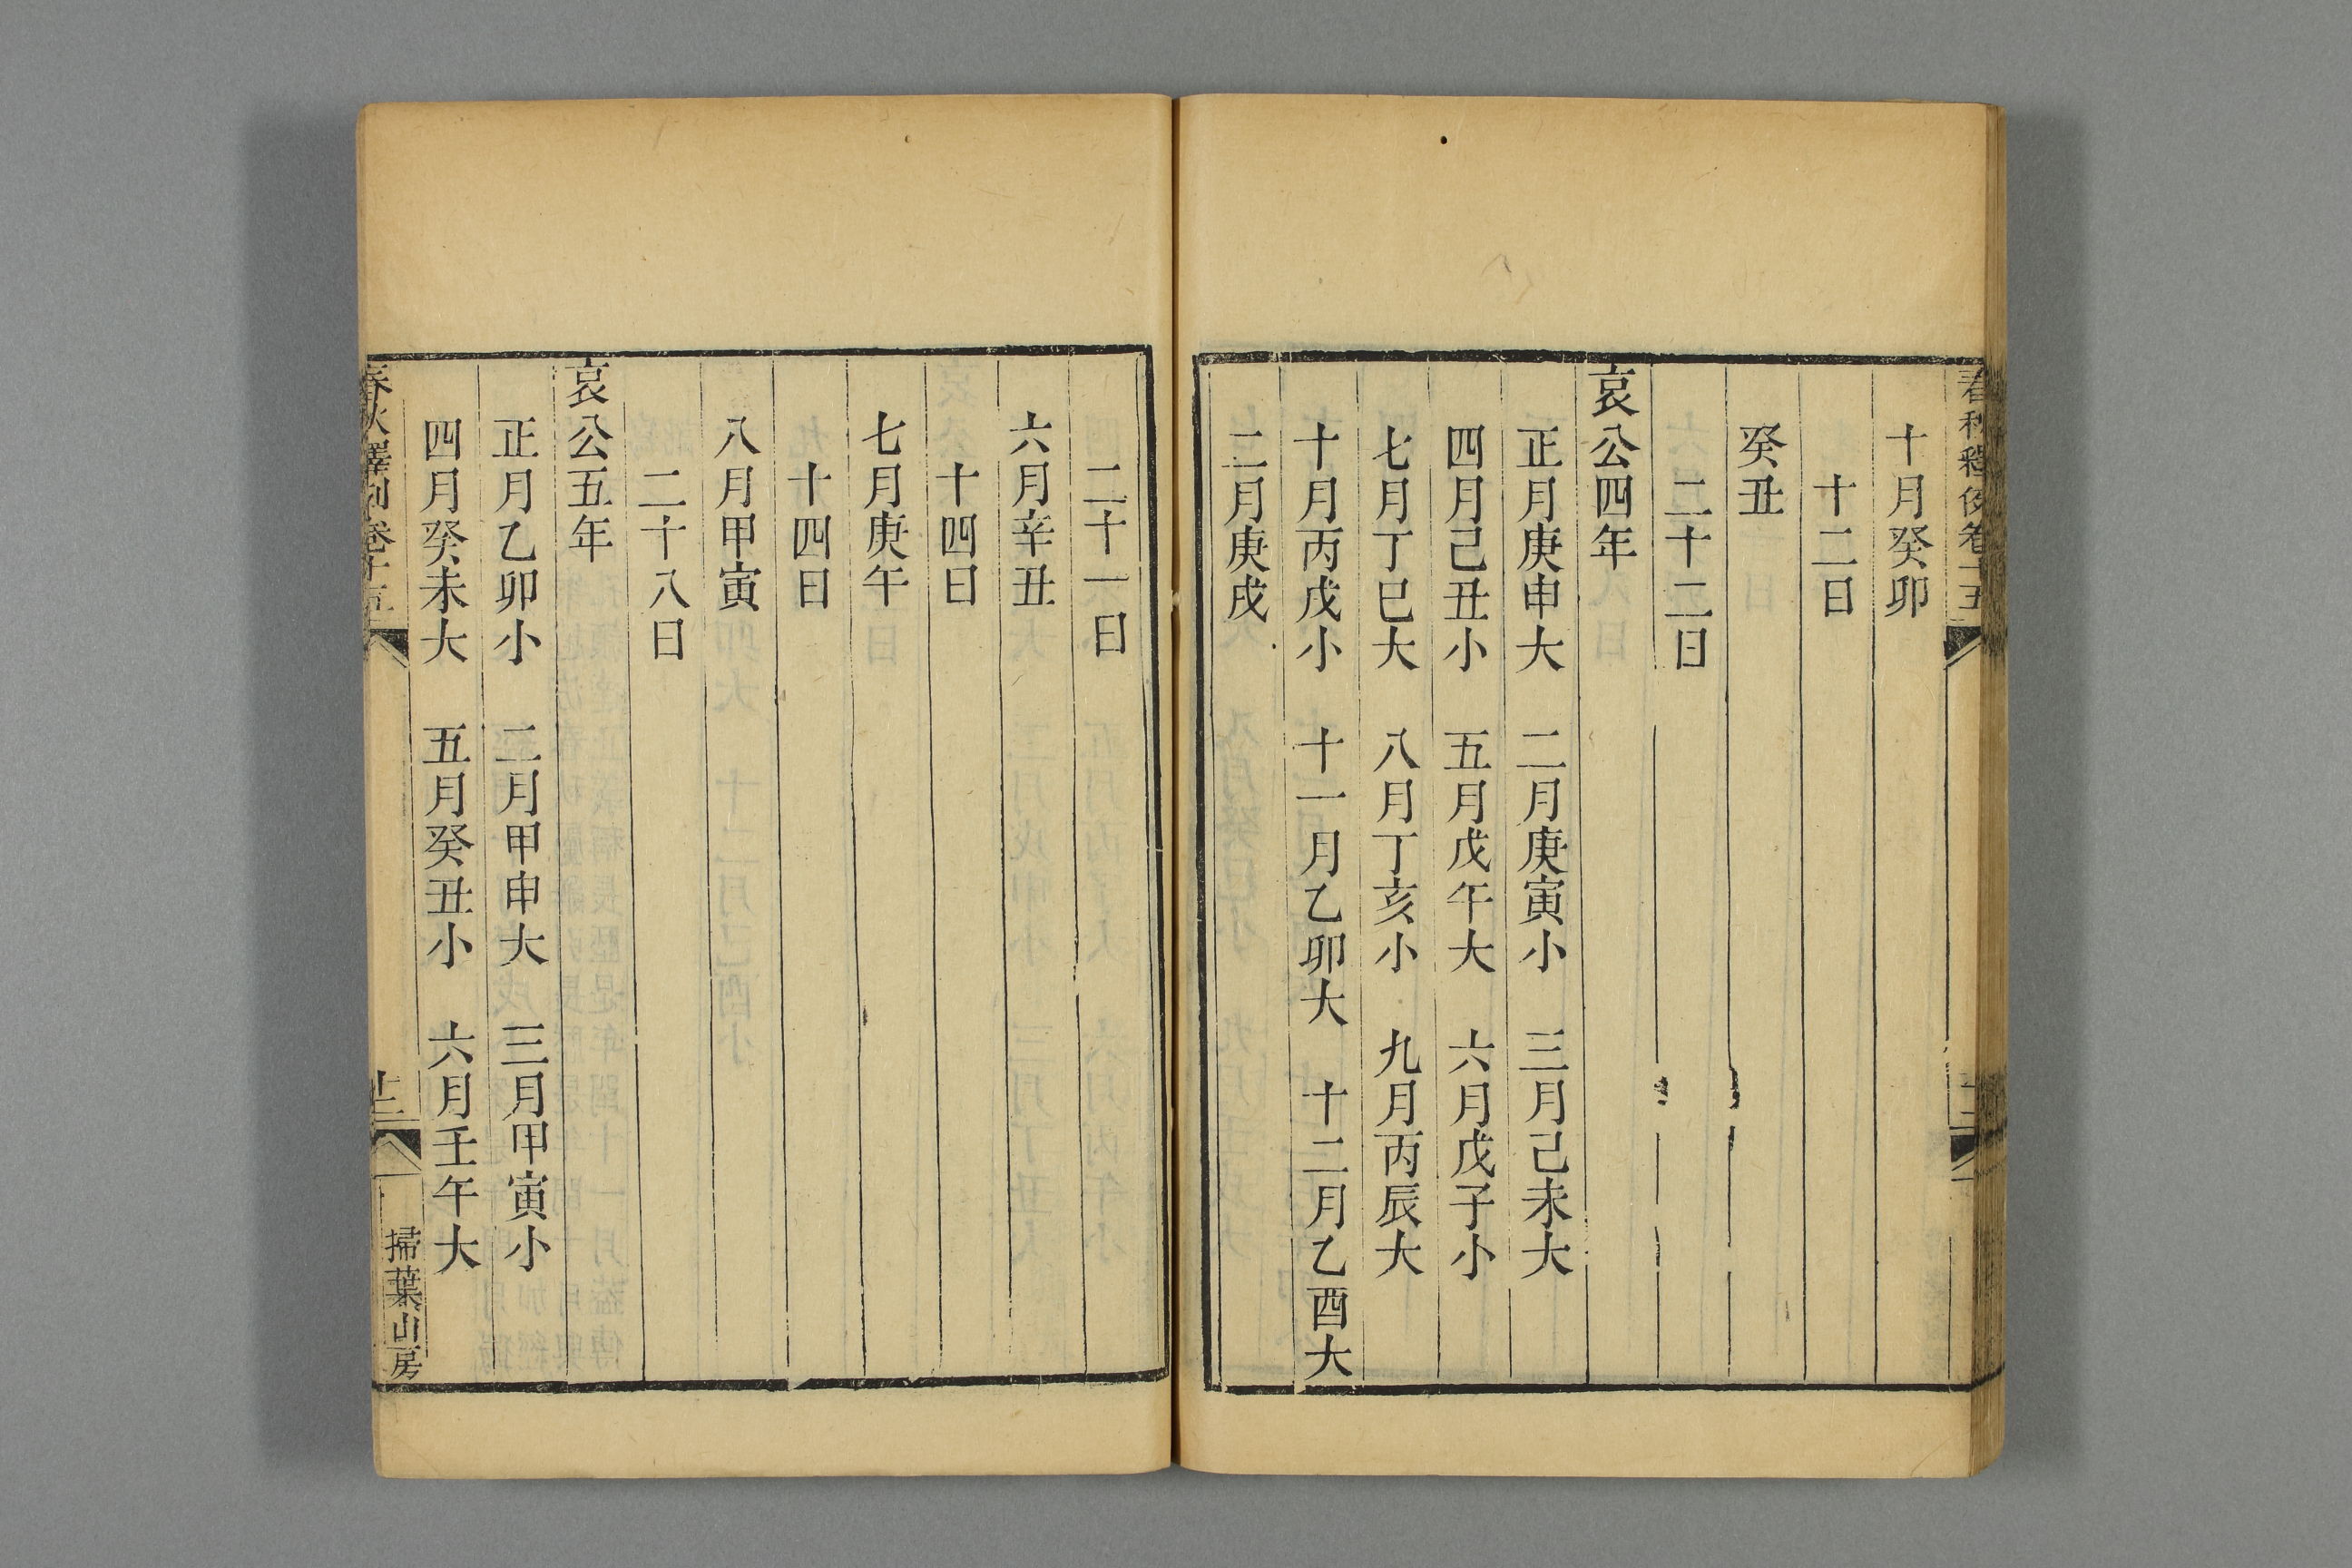 十月癸卯
十二日
癸丑
二十二日
哀公四年
正月庚申大　二月庚寅小　三月己未大
四月己丑小　五月戊午大　六月戊子小
七月丁巳大　八月丁亥小　九月丙辰大
十月丙戌小　十一月乙卯大　十二月乙酉大
二月庚戌
二十一日
六月辛丑
十四日
七月庚午
十四日
八月甲寅
二十八日
哀公五年
正月乙卯小　二月甲申大　三月甲寅小
四月癸未大　五月癸丑小　六月壬午大
春秋釋例卷十五
掃葉山房